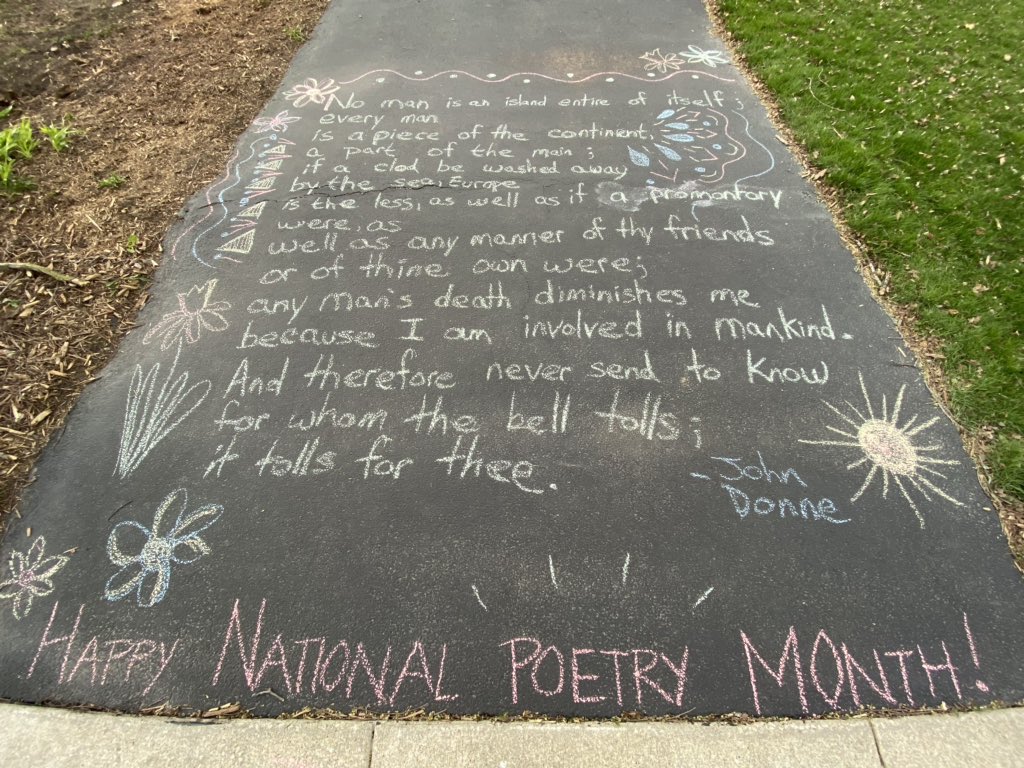 No man is an island entire of itself;
every man
is a piece of the continent,
a part of the main;
if a clod be washed away
by the sea, Europe
is the less, as well as if a promontary
were, as
well as any manner of thy friends
or of thine own were;
any man's death diminishes me
because I am involved in mankind.
And therefore never send to know
for whom the bell tolls;
it tolls for thee.
- John
Donne
HAPPY NATIONAL POETRY MONTH!